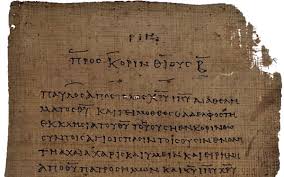 ΠΡΟϹ ΚΟΡΙΝΘΙΟΥϹ Β
ΠΑΥΛΟϹ ΑΠΟϹΤΟΛΟϹ ΧΡΥ ΙΗΥ ΔΙΑ ΘΕΛΗ
ΜΑΤΟϹ ΘΥ ΚΑΙ ΤΕΙΜΟΘΕΟϹ Ο ΑΔΕΛΦΟϹ ΤΗ
ΕΚΚΛΗϹΙΑ ΤΟΥ ΘΥ ΤΗ ΟΥϹΗ ΕΝ ΚΟΡΙΝΘΩ
ϹΥΝ ΤΟΙϹ ΑΓΙΟΙϹ ΠΑϹΙ ΤΟΙϹ ΟΥϹΙΝ ΕΝ Ο
ΛΗ ΤΗ ΑΧΑΙΑ ΧΑΡΙϹ ΥΜΕΙΝ ΚΑΙ ΕΙΡΗΝΗ
ΑΠΟ ΘΥ ΠΑΤΡΟϹ ΗΜΩΝ ΚΑΙ ΚΥ ΙΗΥ ΧΡΥ